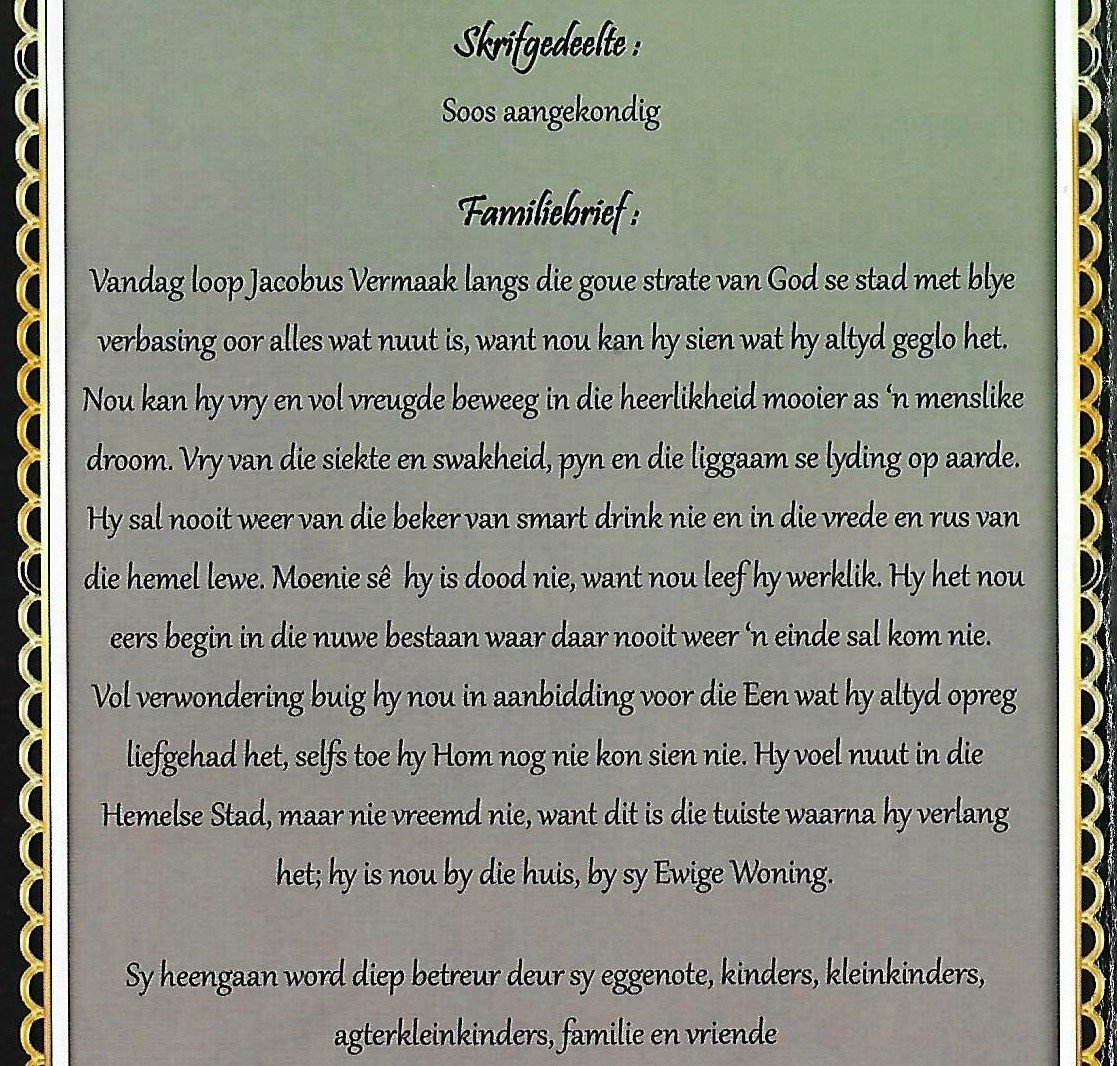 Skrifgedeelte :
Soos aangekondig
Familiebrief :
Vandag loop Jacobus Vermaak langs die goue strate van God se stad met blye
verbasing oor alles wat nuut is, want nou kan hy sien wat hy altyd geglo het.
Nou kan hy vry en vol vreugde beweeg in die heerlikheid mooier as ‘n menslike
droom. Vry van die siekte en swakheid, pyn en die liggaam se lyding op aarde.
Hy sal nooit weer van die beker van smart drink nie en in die vrede en rus van
die hemel lewe. Moenie sê hy is dood nie, want nou leef hy werklik. Hy het nou
eers begin in die nuwe bestaan waar daar nooit weer ‘n einde sal kom nie.
Vol verwondering buig hy nou in aanbidding voor die Een wat hy altyd opreg
liefgehad het, selfs toe hy Hom nog nie kon sien nie. Hy voel nuut in die
Hemelse Stad, maar nie vreemd nie, want dit is die tuiste waarna hy verlang
het; hy is nou by die huis, by sy Ewige Woning.
Sy heengaan word diep betreur deur sy eggenote, kinders, kleinkinders,
agterkleinkinders, familie en vriende